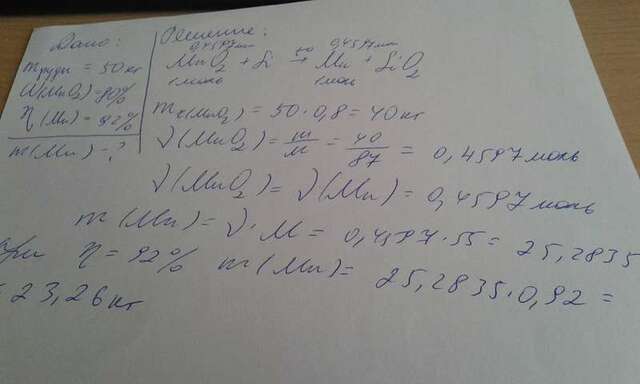 Дано:
m руды = 50 кг
ω(MnO₂) = 80%
η(Mn) = 92%
m(Mn) - ?
Решение:
0,4597 моль 0,4597 моль
MnO₂ + Si →t° Mn + SiO₂
1 моль 1 моль
m (MnO₂) = 50·0,8 = 40 кг
ν(MnO₂) = m/M = 40/87 = 0,4597 моль
ν(MnO₂) = ν(Mn) = 0,4597 моль
m (Mn) = ν·M = 0,4597·55 = 25,2835
При η = 92% m(Mn) = 25,2835·0,92 =
= 23,26 кг